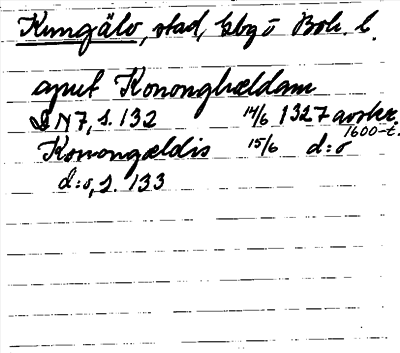 Kungälv, stad, Gbg o Boh. l.
apud Kononghældam
DN 7, s. 132 14/6 1327 avskr. 1600-t.
Konongældis 15/6 d:o
d:o, s. 133